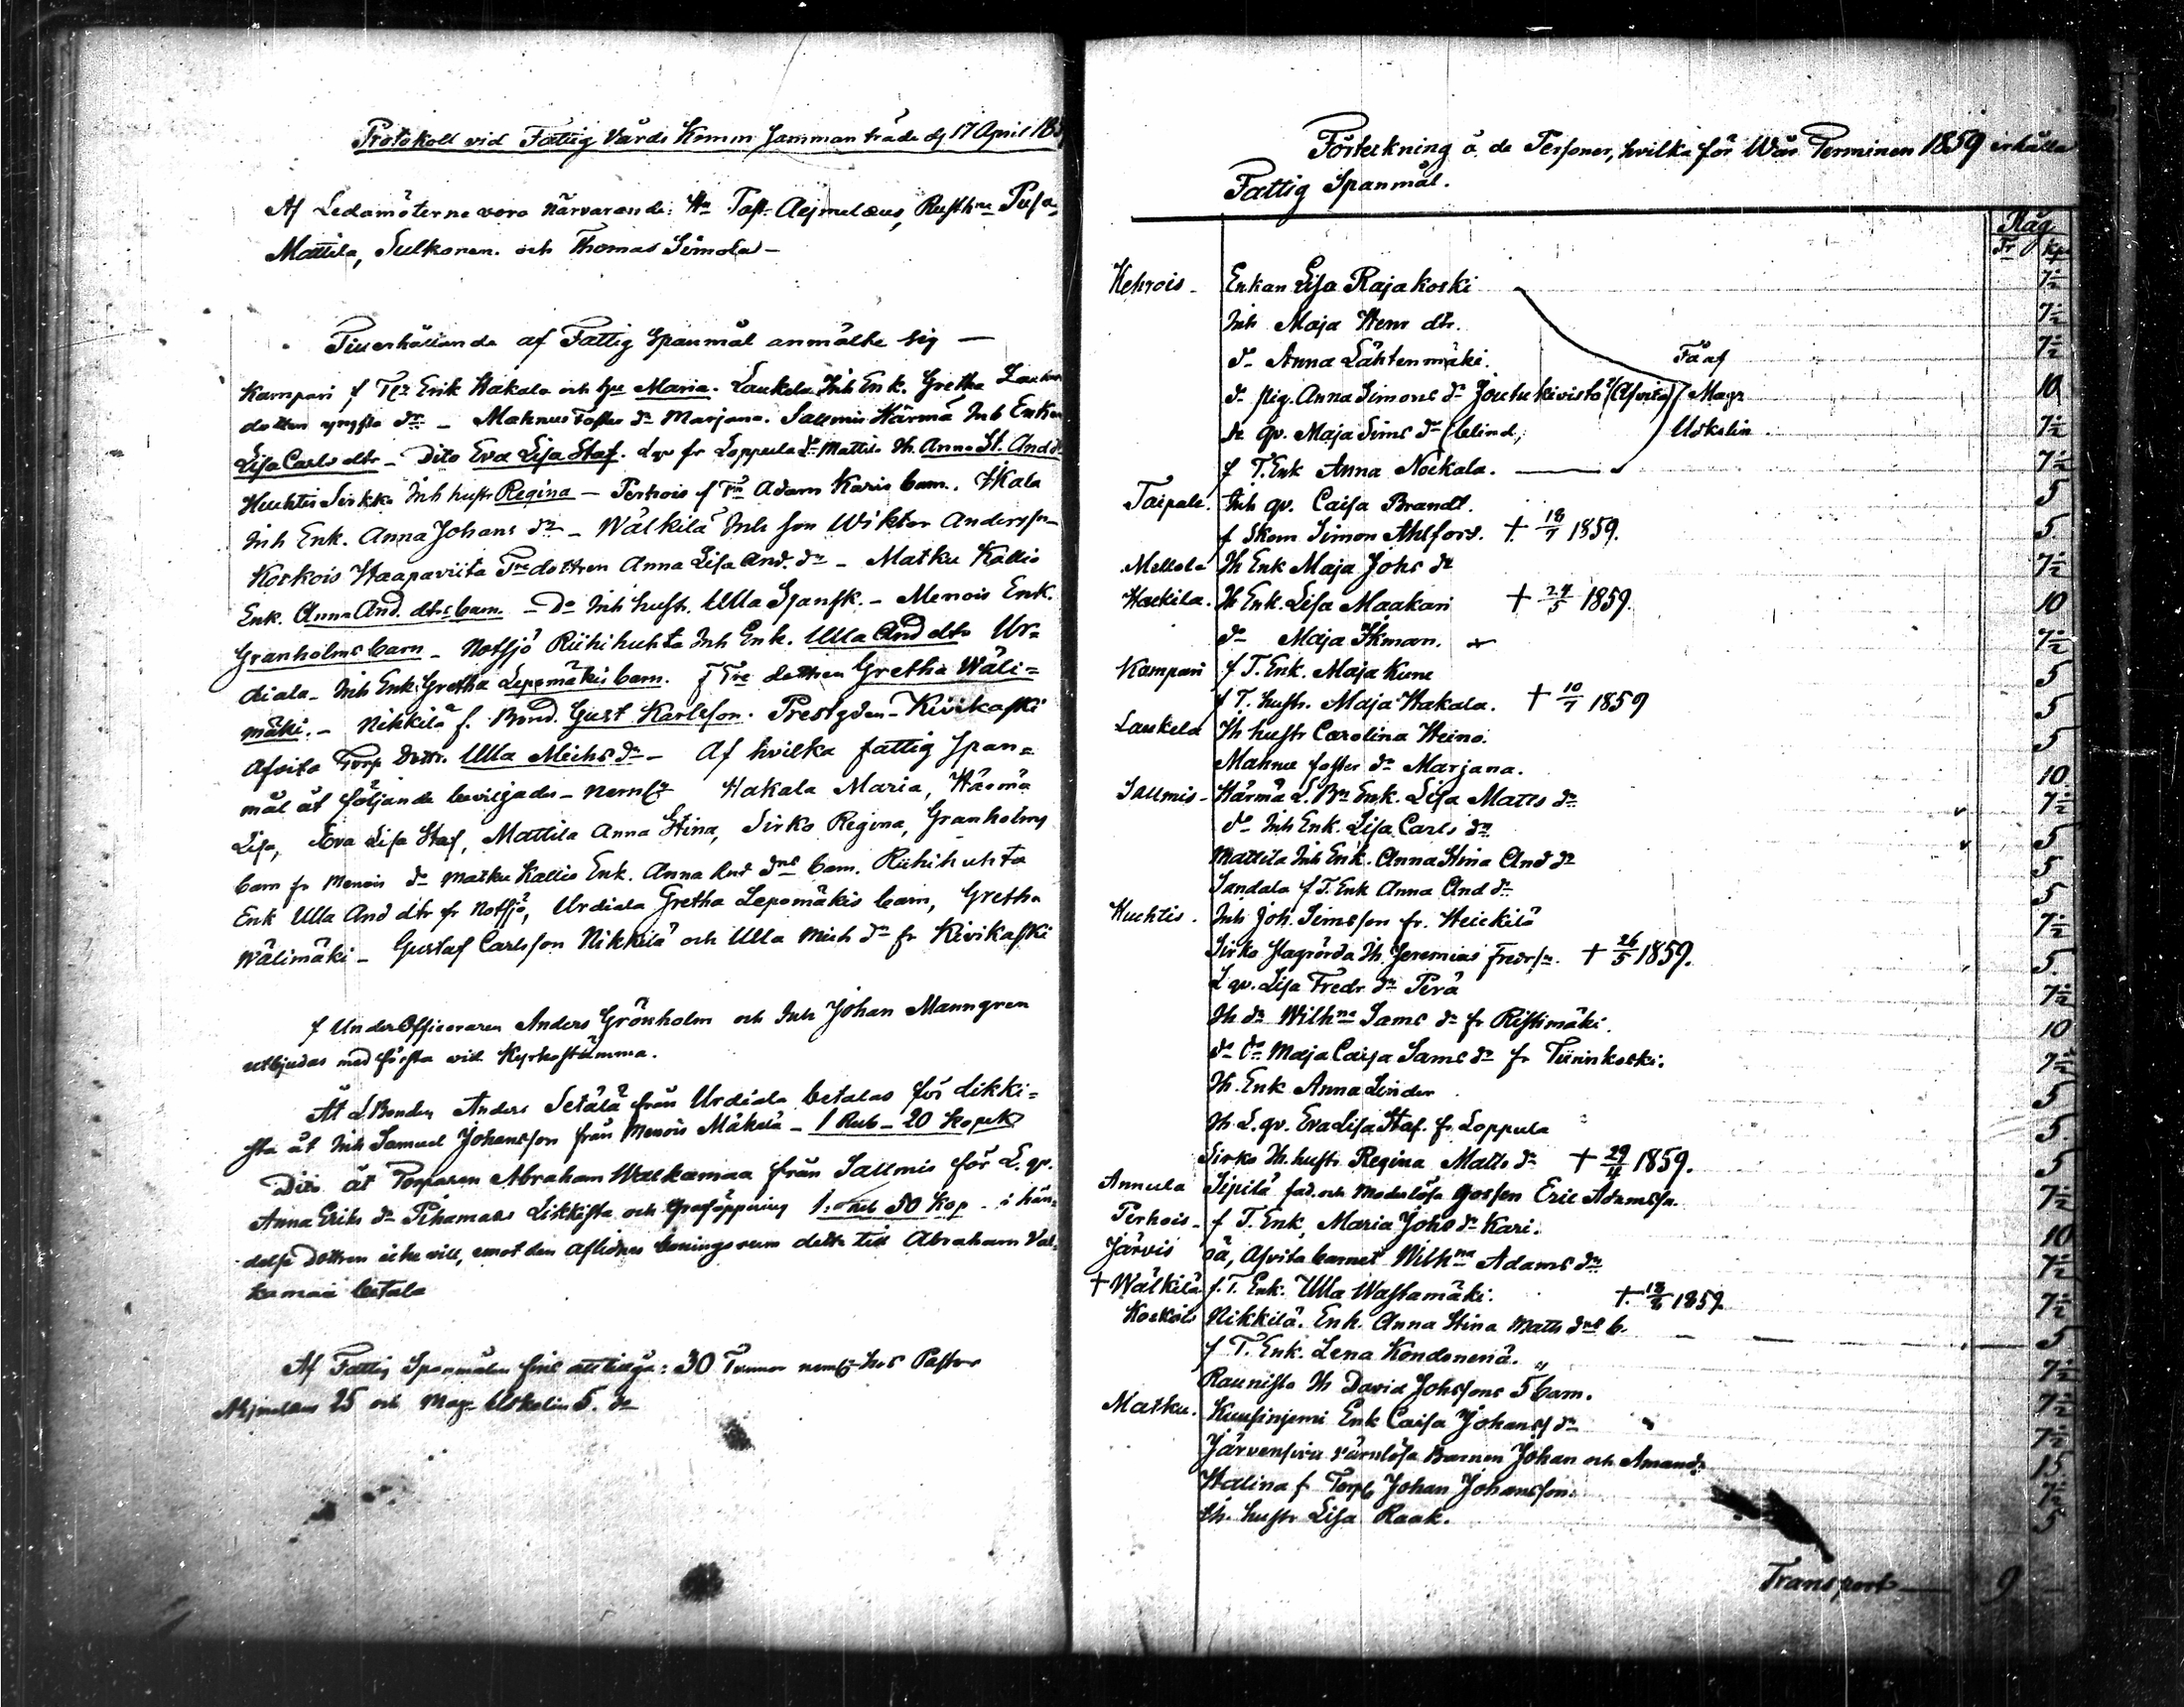 Protokoll vid Fattig Vårds Komm Sammanträde d 17 April 185
Af Ledamöterne voro närvarande: Hr Past. Aejmelæus, Rusth
Mattila, Sulkonen och Thomas Simola –
Till erhållande af Fattig Spanmål anmälte sig —
Kampari f Tr Erik Hakala och hu Maria. Laukela Inh Enk. Gretha
dottren yngsta dr – Mahnus Foster dr Marjana. Jallmis Härmä Inh Enk
Lisa Carls dtr – Dito Eva Lisa Staf. Lqv fr Loppula Mattila Ih. Anna St. And
Huhtis Sirkko Inh hustr Regina – Perhois f Tr Adam Karis barn.
Inh Enk. Anna Johans dr – Wälkilä Inh son Wiktor Anderss
Koskois Haapaviita Tr dottren Anna Lisa And. dr – Matku Kallio
Enk. Anna And. dtrs barn – Do Inh hustr. Ulla Spansk. – Menois Enk.
Granholms barn – Notsjö Riihihuhta Inh Enk. Ulla And dtr Ur=
diala – Inh Enk Gretha Lepomäkis barn. f Trs dottren Gretha Wäli=
mäki. – Nikkilä f. Bond. Gust Karlsson. Prestgden – Kivikaski
Afsita Torp Dottr. Ulla Michs dr – Af hvilka fattig Span=
mål åt följande beviljades – neml Hakala Maria, Härmä
Lisa, Eva Lisa Staf, Mattila Anna Stina, Sirko Regina, Granholms
barn fr Menois do Matku Kallio Enk. Anna And dtrs barn. Riihihuhta
Enk Ulla And dtr fr Notsjö, Urdiala Gretha Lepomäkis barn, Gretha
Wälimäki – Gustaf Carlsson Nikkilä och Ulla Mich dr fr Kivikaski
f UnderOfficeraren Anders Grönholm och Inh Johan Manngren
utbjudas med första vid Kyrkostämma.
Åt L.Bonden Anders Setälä från Urdiala betalas för likki=
sta åt Inh Samuel Johansson från Menois Mäkelä – 1 Rub – 20 Kopek
Dito åt Torparen Abraham Walkamaa från Jallmis för L. qv.
Anna Eriks dr Pihamaas Likkista och Graföppning 1. Rub 50 Kop – i hän=
delse Dottren icke vill, emot den aflidnes boningsrum dette tid Abraham Val=
kamaa betala
Af Fattig Spanmålen fins att tillgå: 30 Tunnor neml hos Pastor
Aejmelæus 25 och Mag. Uskelin 5. do
Förteckning å de Personer, hvilka för Wår Terminen 1859 erhålla
Fattig Spanmål.
Råg
Tr Kp
Kehrois – Enkan Lisa Rajakoski 7½
Inh Maja Henr dtr. 7½
do Anna Lähtenmäki. Få af 7½
do pig. Anna Simons dr Joutukivistö (Afsita) Magr 10
do qv. Maja Sims dr (blind, Uskelin 7½
f T.Enk Anna Nokkala. 7½
Taipale. Inh qv. Caisa Brandt. 5
f Skom Simon Ahlfors. † 18/7 1859. 5
Mellola Ih Enk Maja Johs dr 7½
Haukila. Ih Enk. Lisa Maakari † 24/5 1859. 10
do Maja Ikman. 7½
Kampari f T. Enk. Maja Kune 5
f T. hustr. Maja Hakala. † 10/7 1859 5
Laukela Ih hustr Carolina Heino. 5
Mahnus foster dr Marjana. 10
Jallmis – Härmä L. Bn Enk. Lisa Matts dr v 7½
do Inh Enk. Lisa Carls dr v 5
Mattila Inh Enk. Anna Stina And dr 5
Jandala f T. Enk Anna And dr 5
Huhtis. Inh Joh. Simsson fr. Heickilä 7½
Sirko Ih. Jeremias Fredrsn. † 26/5 1859. 5
L qv. Lisa Fredr dr Perä 7½
Ih dr Wilhna Sams dr fr Ristimäki. 10
do dr Maja Caisa Sams dr fr Tiinnkoski. 7½
Ih. Enk Anna Linder 5
Ih L. qv. Eva Lisa Staf. fr Loppula 5.
Sirko Ih. hustr Regina Matts dr † 29/4 1859. 5
Annula Sipilä fad. och Moderlösa gossen Eric Adamssn. 7½
Perhois – f T. Enk, Maria Johs dr Kari. 10
Järvis Afsita barnet Wilhna Adams dr 7½
† Wälkilä f. T. Enk. Ulla Wastamäki. † 18/6 1859 7½
Koskois Nikkilä. Enk. Anna Stina Matts drs b. 5
f T. Enk. Lena Kondonenä. " 7½
Raunisto Ih David Johssons 5 barn. 7½
Matku. Kuusinjemi Enk Caisa Johanss dr 7½
Järvensivu värnlösa Barnen Johan och Amanda 15
Hallina f Torp Johan Johansson. 7½
Ih. hustr Lisa Raak. 5
Transport — 9